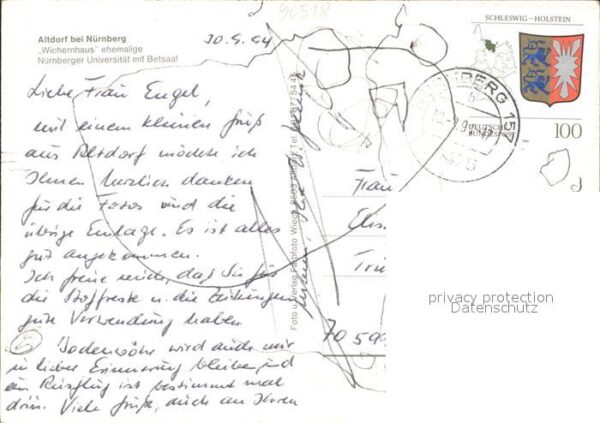 90518
Altdorf bei Nürnberg
„Wichernhaus" ehemalige
Nürnberger Universität mit Betsaal
10.9.94
Liebe Frau Engel,
mit einem kleinen Gruß
aus Altdorf möchte ich
Ihnen herzlich danken
für die Fotos und die
übrige Einlage. Es ist alles
gut angekommen.
Ich freue mich, daß Sie für
die Stoffreste u. die Zeitungen
gute Verwendung haben.
Bodenwöhr wird auch mir
in lieber Erinnerung bleiben und
ein Ausflug ist bestimmt mal
drin. Viele Grüße, auch an Ihren
Foto u. Verlag
SCHLESWIG - HOLSTEIN
DEUTSCHE
BUNDESPOST
100
BERG 15
Frau
70 599
privacy protection
Datenschutz